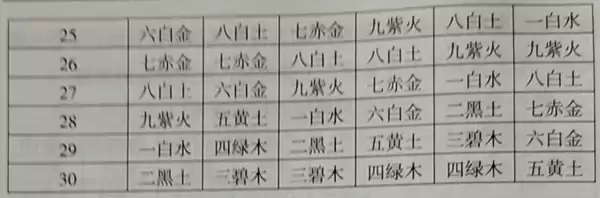 25 六白金 八白土 七赤金 九紫火 八白土 一白水
26 七赤金 七赤金 八白土 八白土 九紫火 九紫火
27 八白土 六白金 九紫火 七赤金 一白水 八白土
28 九紫火 五黄土 一白水 六白金 二黑土 七赤金
29 一白水 四绿木 二黑土 五黄土 三碧木 六白金
30 二黑土 三碧木 三碧木 四绿木 四绿木 五黄土